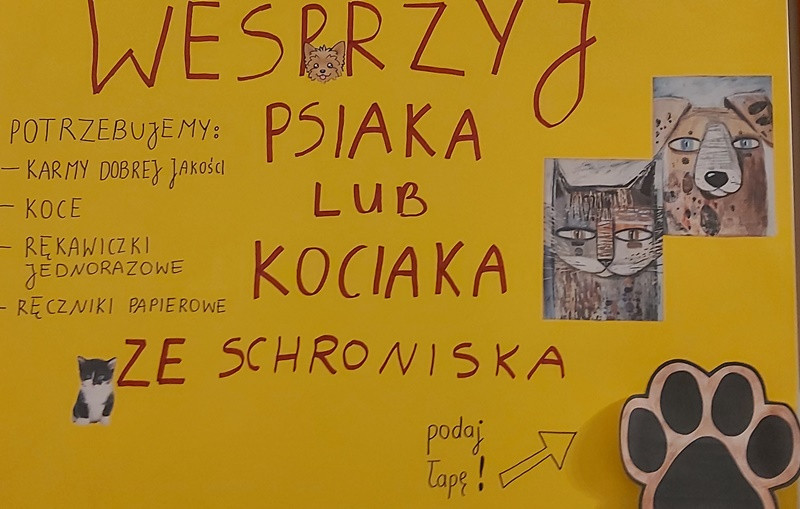 WESPRZYJ
PSIAKA
LUB
KOCIAKA
ZE SCHRONISKA
POTRZEBUJEMY:
– KARMY DOBREJ JAKOŚCI
– KOCE
– RĘKAWICZKI
JEDNORAZOWE
– RĘCZNIKI PAPIEROWE
podaj
łapę!